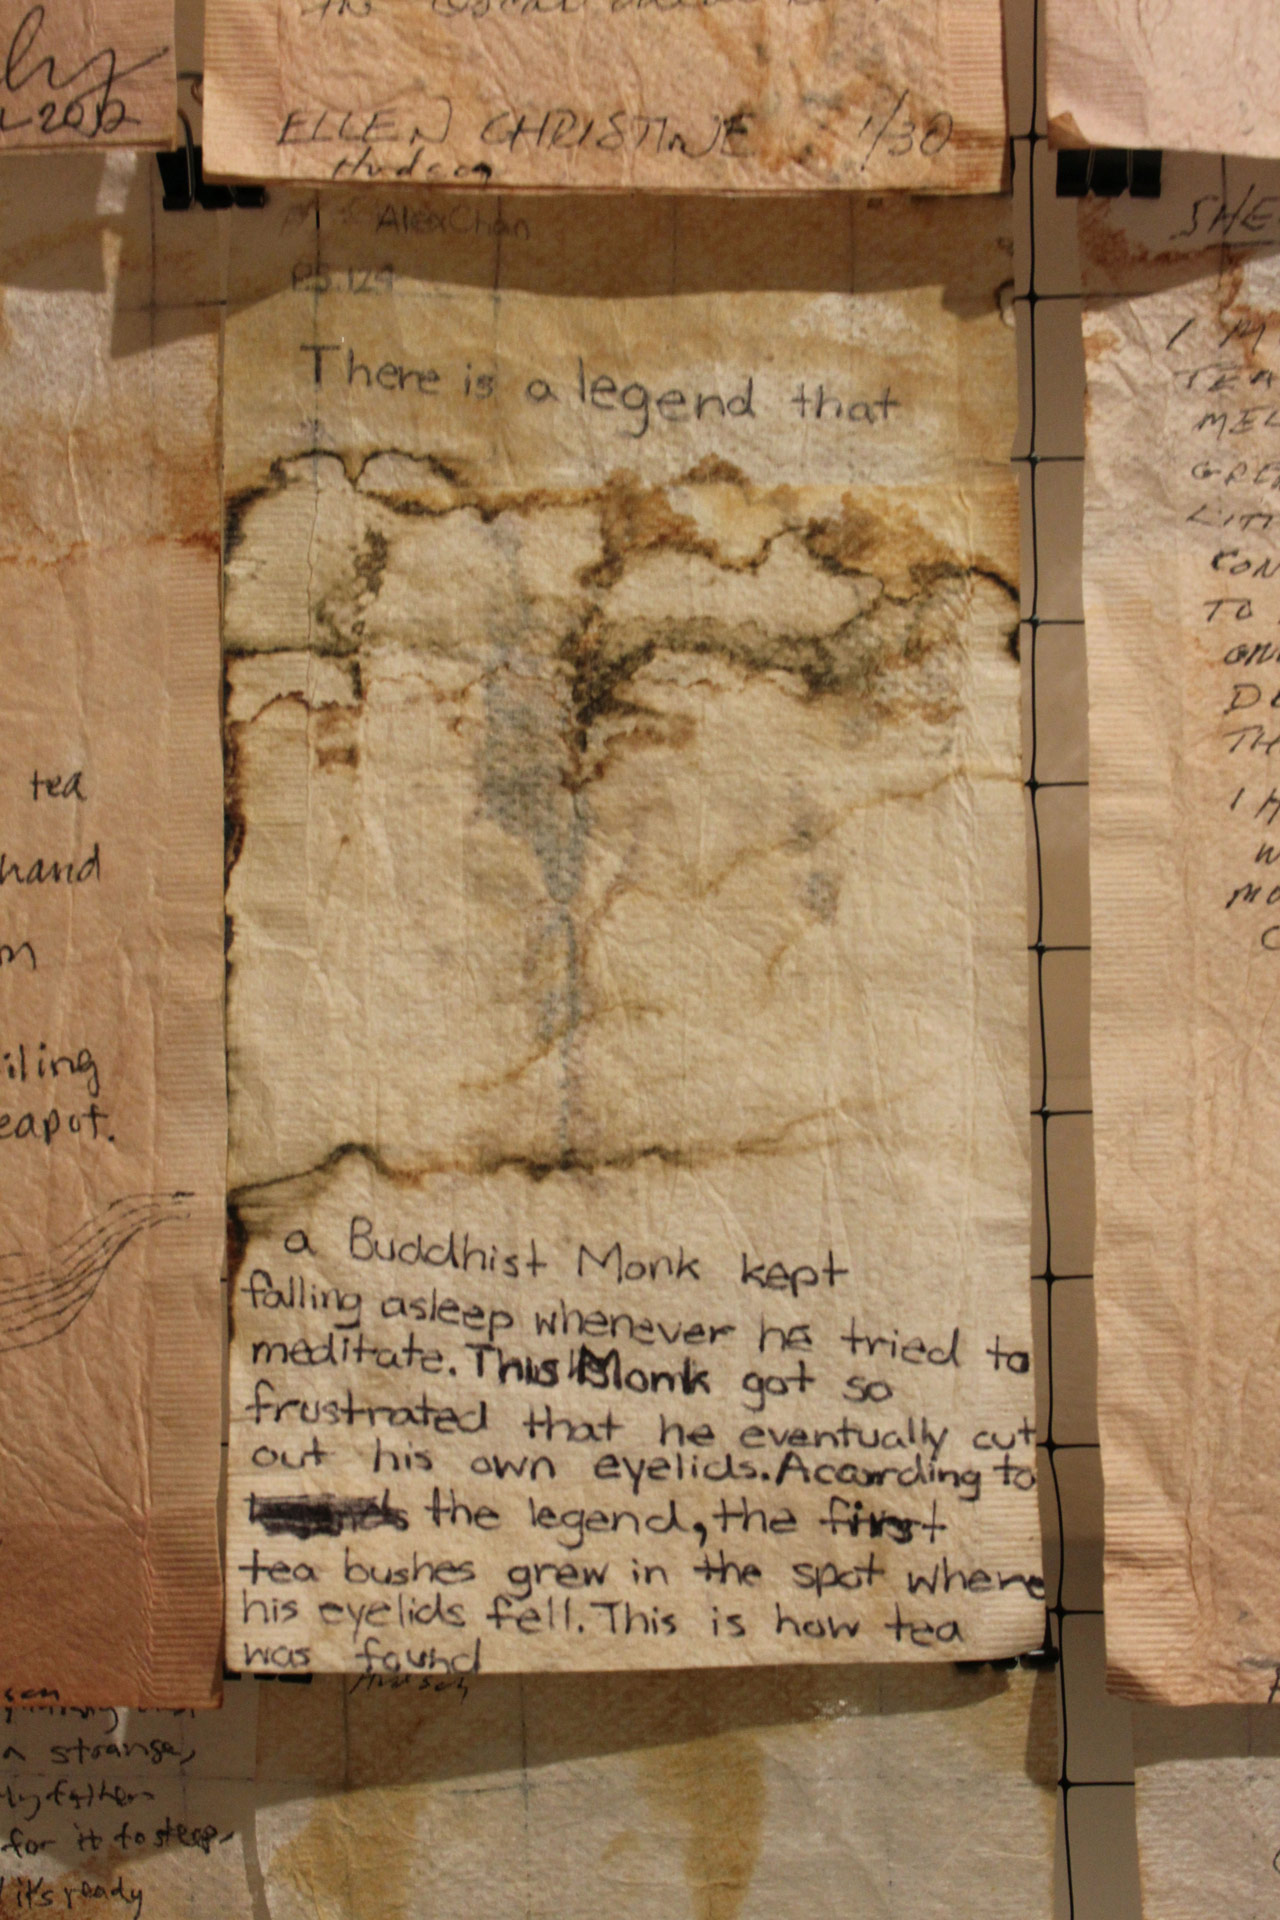 2012
ELLEN CHRISTINE 1/30
Hudson
Alex Chan
P.S. 124
There is a legend that
a Buddhist Monk kept
falling asleep whenever he tried to
meditate. This Monk got so
frustrated that he eventually cut
out his own eyelids. According to
the legend, the first
tea bushes grew in the spot where
his eyelids fell. This is how tea
was found
Hudson
tea
hand
iling
eapot.
a strange,
for it to steep,
it's ready
SHE
I M
TEA
MEL
GRE
LITT
CON
TO
ON
DU
TH
I H
W
MO
C